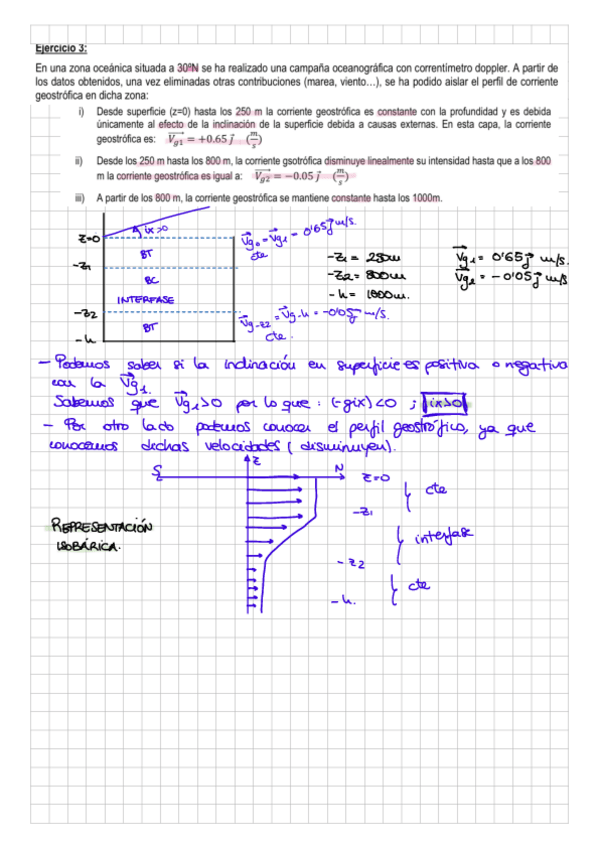 Ejercicio 3:
En una zona oceánica situada a 30ºN se ha realizado una campaña oceanográfica con correntímetro doppler. A partir de
los datos obtenidos, una vez eliminadas otras contribuciones (marea, viento…), se ha podido aislar el perfil de corriente
geostrófica en dicha zona:
i) Desde superficie (z=0) hasta los 250 m la corriente geostrófica es constante con la profundidad y es debida
únicamente al efecto de la inclinación de la superficie debida a causas externas. En esta capa, la corriente
geostrófica es: Vg1 = +0.65 j (m/s)
ii) Desde los 250 m hasta los 800 m, la corriente gsotrófica disminuye linealmente su intensidad hasta que a los 800
m la corriente geostrófica es igual a: Vg2 = −0.05 j (m/s)
iii) A partir de los 800 m, la corriente geostrófica se mantiene constante hasta los 1000m.
ix>0
z=0
Vg0 = Vg1 = 0'65 j m/s.
cte
BT
-z1
BC
INTERFASE
-z2
BT
-h
Vg-z2 = Vg-h = -0'05 j m/s.
cte.
-z1 = 250m
-z2 = 800m
-h = 1000m.
Vg1 = 0'65 j m/s.
Vg2 = -0'05 j m/s
- Podemos saber si la inclinación en superficie es positiva o negativa
con la Vg1.
Sabemos que Vg1>0 por lo que : (-gix)<0 ; ix>0
- Por otro lado podemos conocer el perfil geostrófico, ya que
conocemos dichas velocidades (disminuyen).
S
z
N
z=0
cte
-z1
REPRESENTACIÓN
ISOBÁRICA.
interfase
-z2
cte
-h.